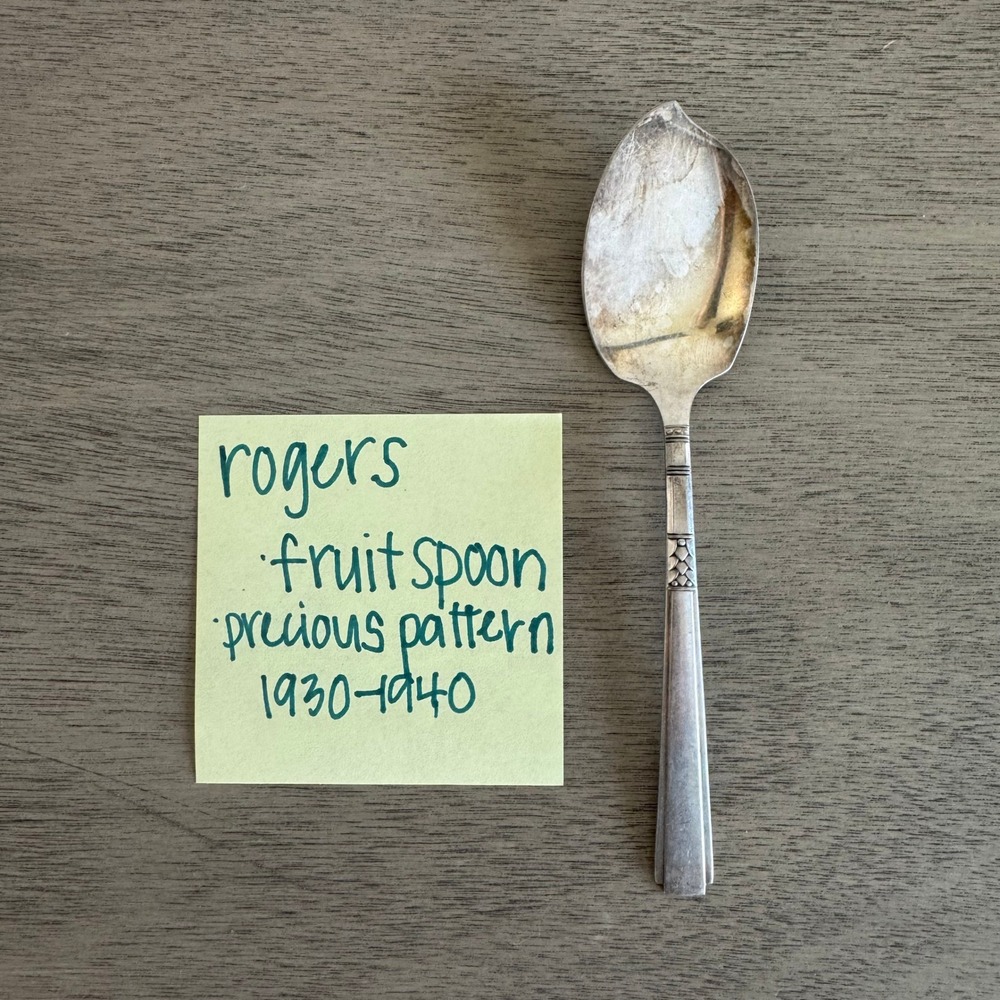 rogers
·fruit spoon
·precious pattern
1930-1940